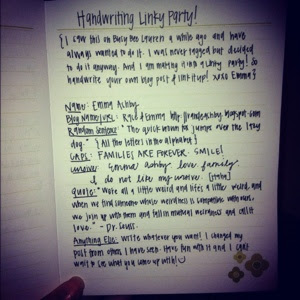 Handwriting Linky Party!
{I saw this on Busy Bee Lauren a while ago and have
always wanted to do it. I was never tagged but decided
to do it anyway. And I am making it into a Linky party! So
handwrite your own blog post & link it up! xoxo Emma}
Name: Emma Ashby
Blog Name/URL: Rae & Emma http://
Random Sentence: "The quick brown fox jumps over the lazy
dog." {All the letters in the alphabet}
CAPS: FAMILIES ARE FOREVER. SMILE!
cursive: Emma Ashby love family.
I do not like my cursive. [haha]
quote: "We're all a little weird and life's a little weird, and
when we find someone whose weirdness is compatible with ours,
we join up with them and fall in mutual weirdness and call it
love." - Dr. Seuss.
Anything Else: write whatever you want! I changed my
post from others I have seen. Have fun with it and I can't
wait to see what you come up with!